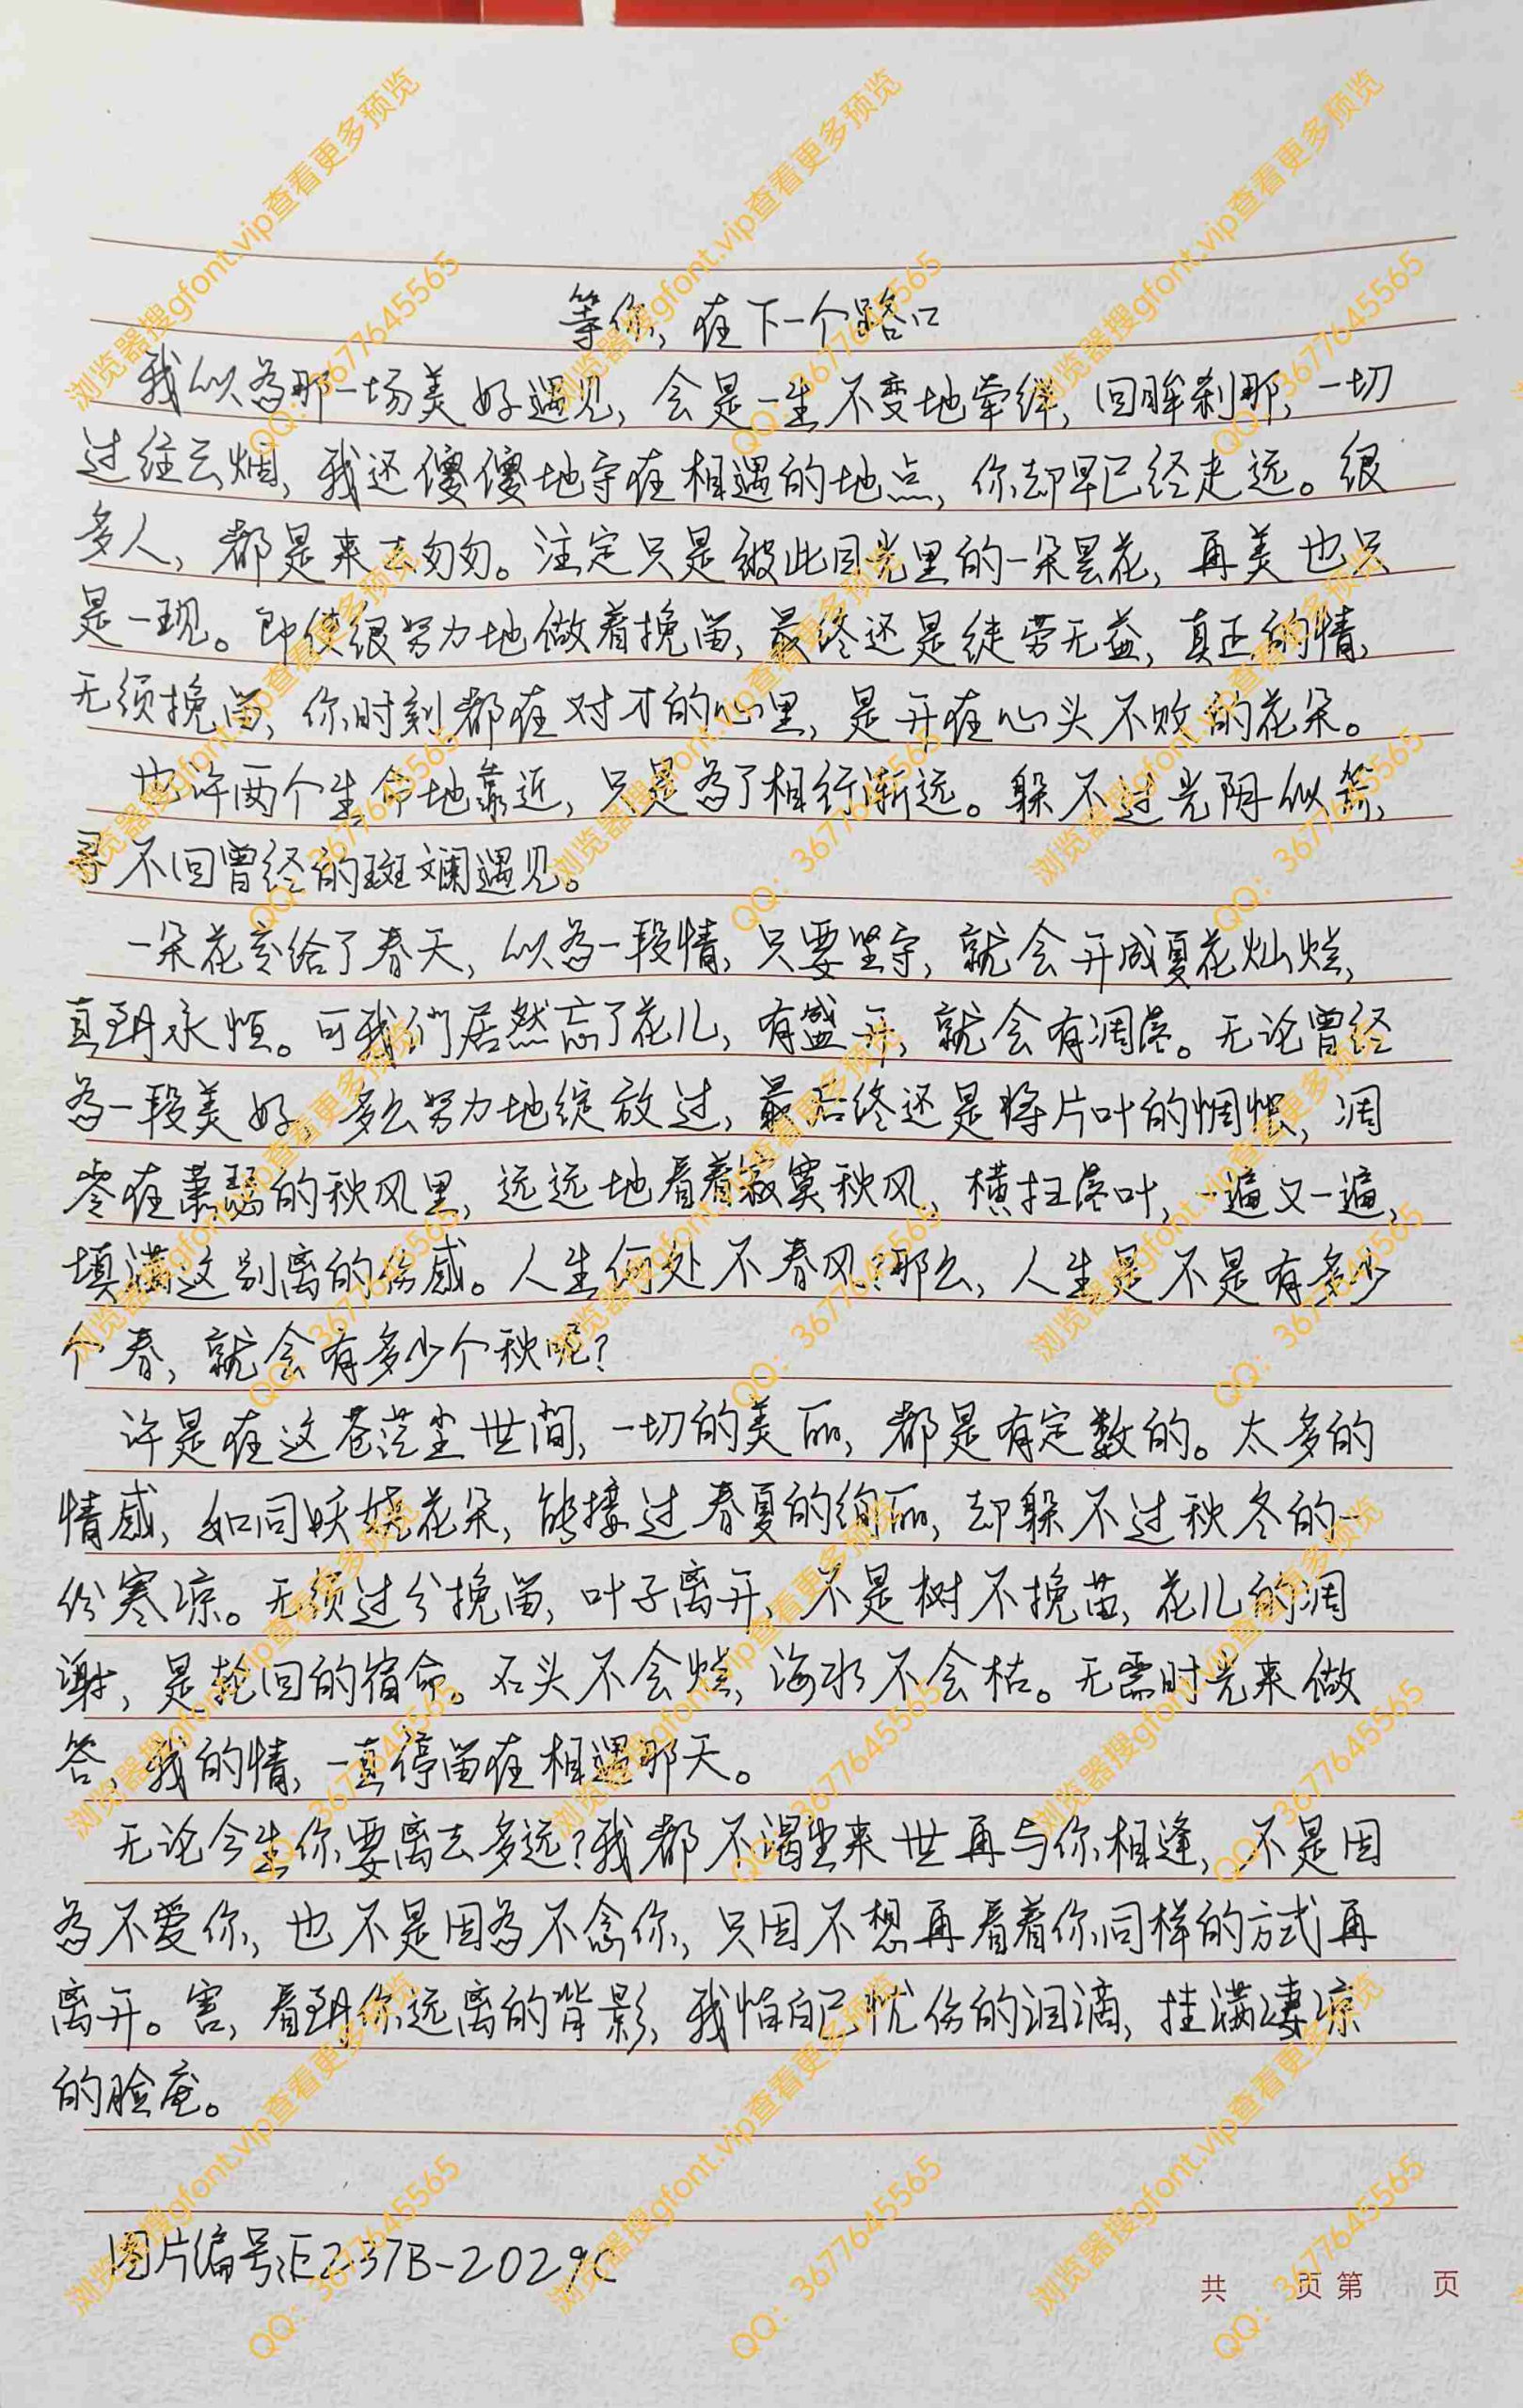 等你，在下一个路口
我以为那一场美好遇见，会是一生不变地牵绊，回眸刹那，一切
过往云烟，我还傻傻地守在相遇的地点，你却早已经走远。很
多人，都是来去匆匆。注定只是彼此目光里的一朵昙花，再美也只
是一现。即使很努力地做着挽留，最终还是徒劳无益，真正的情，
无须挽留，你时刻都在对才的心里，是开在心头不败的花朵。
也许两个生命地靠近，只是为了相行渐远。躲不过光阴似箭，
寻不回曾经的斑斓遇见。
一朵花交给了春天，以为一段情，只要坚守，就会开成夏花灿烂，
直到永恒。可我们居然忘了花儿，有盛开，就会有凋落。无论曾经
为一段美好，多么努力地绽放过，最后终还是将片叶的惆怅，凋
零在萧瑟的秋风里，远远地看着寂寞秋风，横扫落叶，一遍又一遍，
填满这别离的伤感。人生何处不春风？那么，人生是不是有多少
个春，就会有多少个秋呢？
许是在这苍茫尘世间，一切的美丽，都是有定数的。太多的
情感，如同妖娆花朵，能接过春夏的绚丽，却躲不过秋冬的一
份寒凉。无须过分挽留，叶子离开，不是树不挽苗，花儿的凋
谢，是轮回的宿命。石头不会烂，海水不会枯。无需时光来做
答，我的情，一直停留在相遇那天。
无论今生你要离去多远？我都不渴望来世再与你相逢，不是因
为不爱你，也不是因为不念你，只因不想再看着你同样的方式再
离开。害，看到你远离的背影，我怕自己忧伤的泪滴，挂满凄凉
的脸庞。
图片编号汇237B-2029C
共 页 第 页
浏览器搜gfont.vip查看更多预览
QQ：3677645565